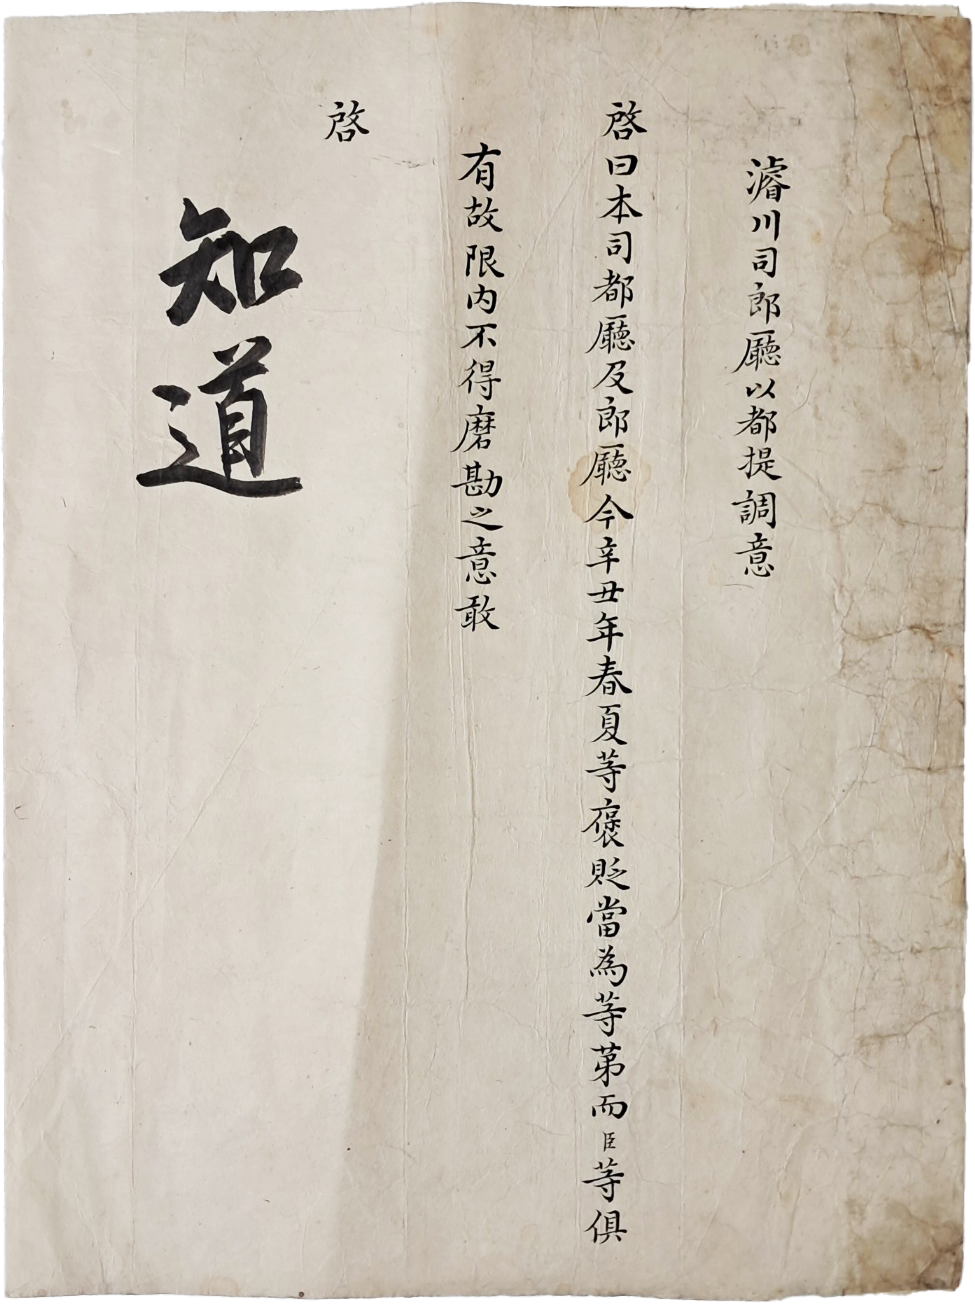 濬川司郎廳以都提調意
啓曰本司都廳及郎廳今辛丑年春夏等褒貶當為等第而臣等俱
有故限內不得磨勘之意敢
啓
知道